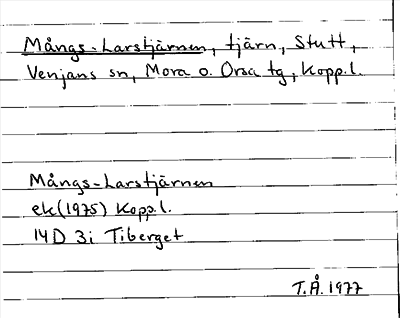 Mångs-Larstjärnen, tjärn, Stutt,
Venjans sn, Mora o. Orsa tg, Kopp.l.
Mångs-Larstjärnen
ek(1975) Kopp.l.
14D 3i Tiberget
T.Å. 1977